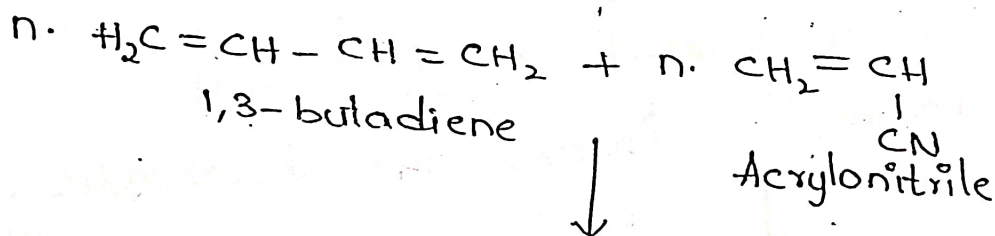 n. H₂C = CH – CH = CH₂ + n. CH₂ = CH
CN
1,3-butadiene
Acrylonitrile